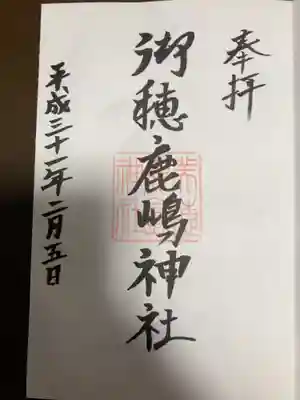 奉拝
御穂鹿嶋神社
平成三十一年二月五日